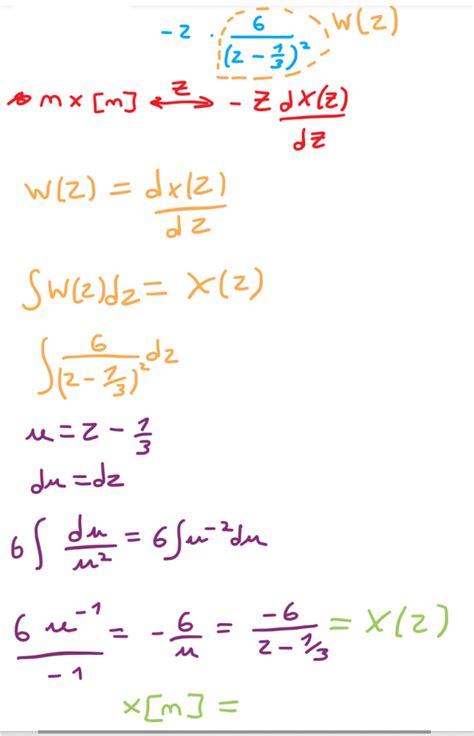 -z · 6/(z - 1/3)² W(z)
n x[n] ⟷ᶻ -z dX(z)/dz
W(z) = dx(z)/dz
∫W(z)dz = X(z)
∫ 6/(z - 1/3)² dz
u = z - 1/3
du = dz
6∫ du/u² = 6∫u⁻²du
6 u⁻¹/-1 = -6/u = -6/(z - 1/3) = X(z)
x[n] =